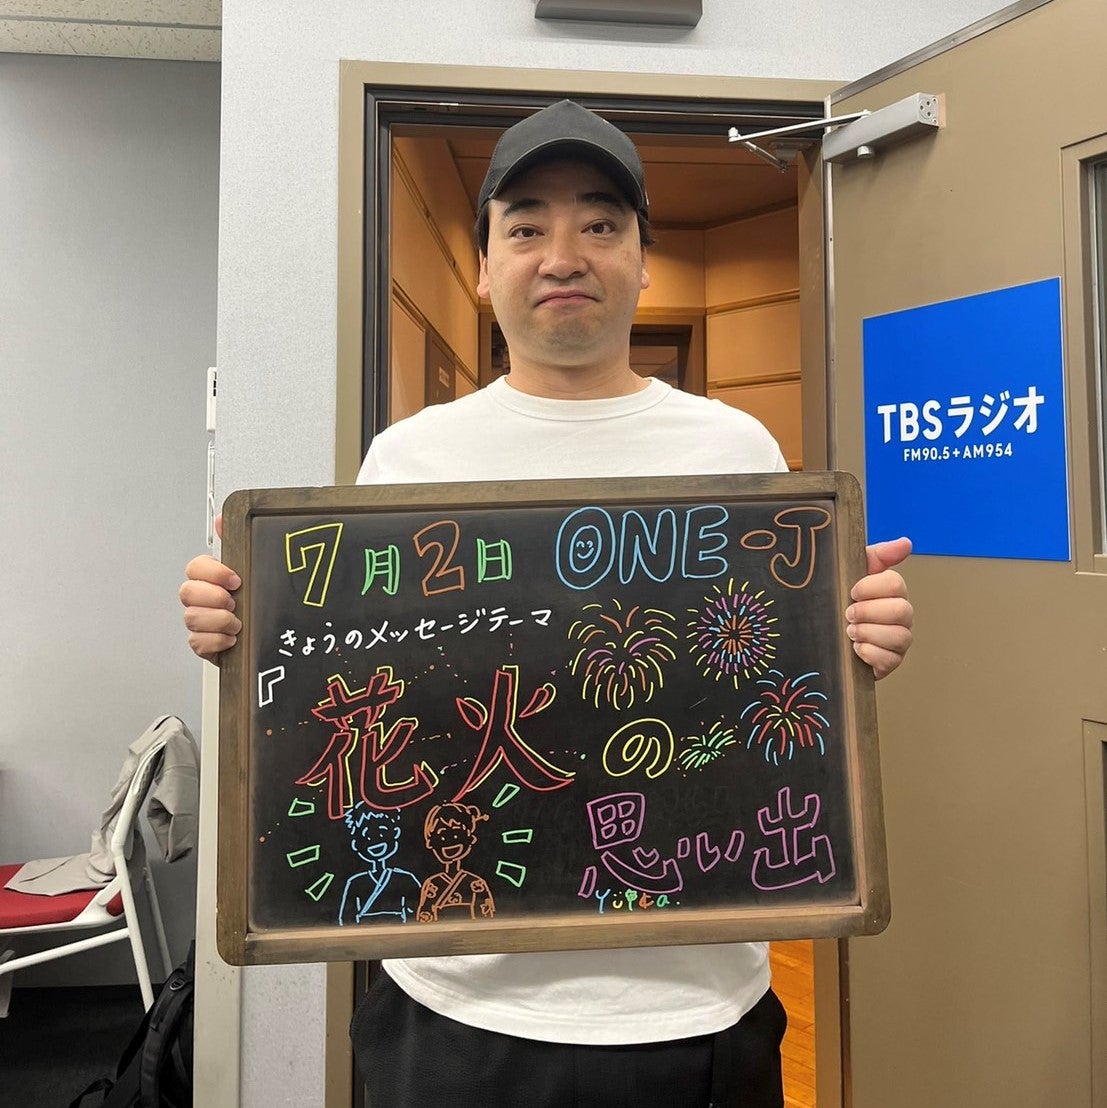 7月2日 ONE-J
きょうのメッセージテーマ
『花火の
思い出
Yuika.
TBSラジオ
FM90.5+AM954